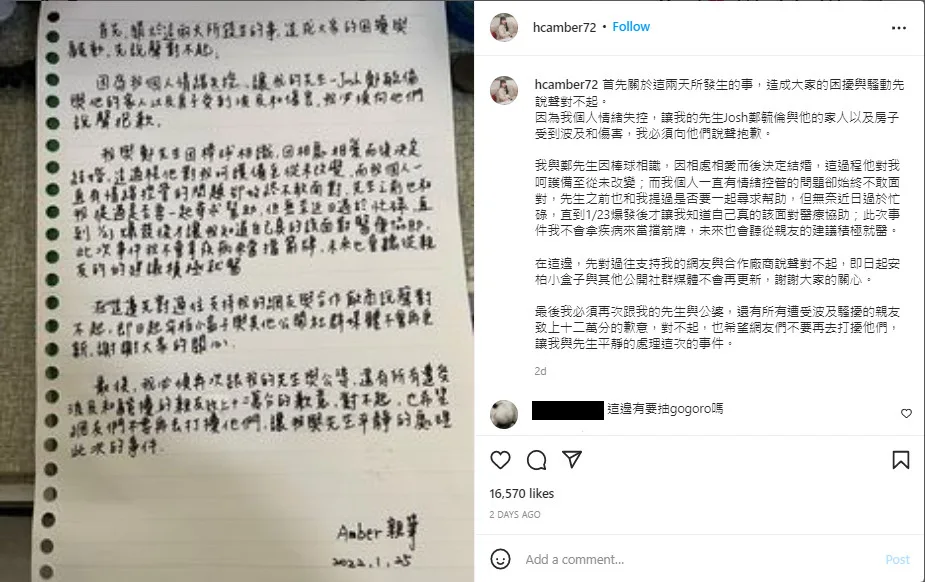 首先,關於這兩天所發生的事,造成大家的困擾與
騷動,先說聲對不起。
因為我個人情緒失控,讓我的先生-Josh鄭毓倫
與他的家人以及房子受到波及和傷害,我必須向他們
說聲抱歉。
我與鄭先生因棒球相識,因相處相愛而後決定
結婚,這過程他對我呵護備至從未改變,而我個人一
直有情緒控管的問題卻始終不敢面對,先生之前也和
我提過是否要一起尋求幫助,但無奈近日過於忙碌,直
到1/23爆發後才讓我知道自己真的該面對醫療協助,
此次事件我不會拿疾病來當擋箭牌,未來也會聽從親
友的的建議積極就醫
在這邊先對過往支持我的網友與合作廠商說聲對
不起,即日起安柏小盒子與其他公開社群媒體不會再更
新,謝謝大家的關心.
最後,我必須再次跟我的先生與公婆,還有所有遭受
波及和騷擾的親友致上十二萬分的歉意,對不起,也希望
網友們不要再去打擾他們,讓我與先生平靜的處理
此次的事件.
Amber 親筆
2022.1.25
hcamber72 • Follow
hcamber72 首先關於這兩天所發生的事，造成大家的困擾與騷動先
說聲對不起。
因為我個人情緒失控，讓我的先生Josh鄭毓倫與他的家人以及房子
受到波及和傷害，我必須向他們說聲抱歉。
我與鄭先生因棒球相識，因相處相愛而後決定結婚，這過程他對我
呵護備至從未改變；而我個人一直有情緒控管的問題卻始終不敢面
對，先生之前也和我提過是否要一起尋求幫助，但無奈近日過於忙
碌，直到1/23爆發後才讓我知道自己真的該面對醫療協助；此次事
件我不會拿疾病來當擋箭牌，未來也會聽從親友的建議積極就醫。
在這邊，先對過往支持我的網友與合作廠商說聲對不起，即日起安
柏小盒子與其他公開社群媒體不會再更新，謝謝大家的關心。
最後我必須再次跟我的先生與公婆，還有所有遭受波及騷擾的親友
致上十二萬分的歉意，對不起，也希望網友們不要再去打擾他們，
讓我與先生平靜的處理這次的事件。
2d
這邊有要抽gogoro嗎
16,570 likes
2 DAYS AGO
Add a comment...
Post